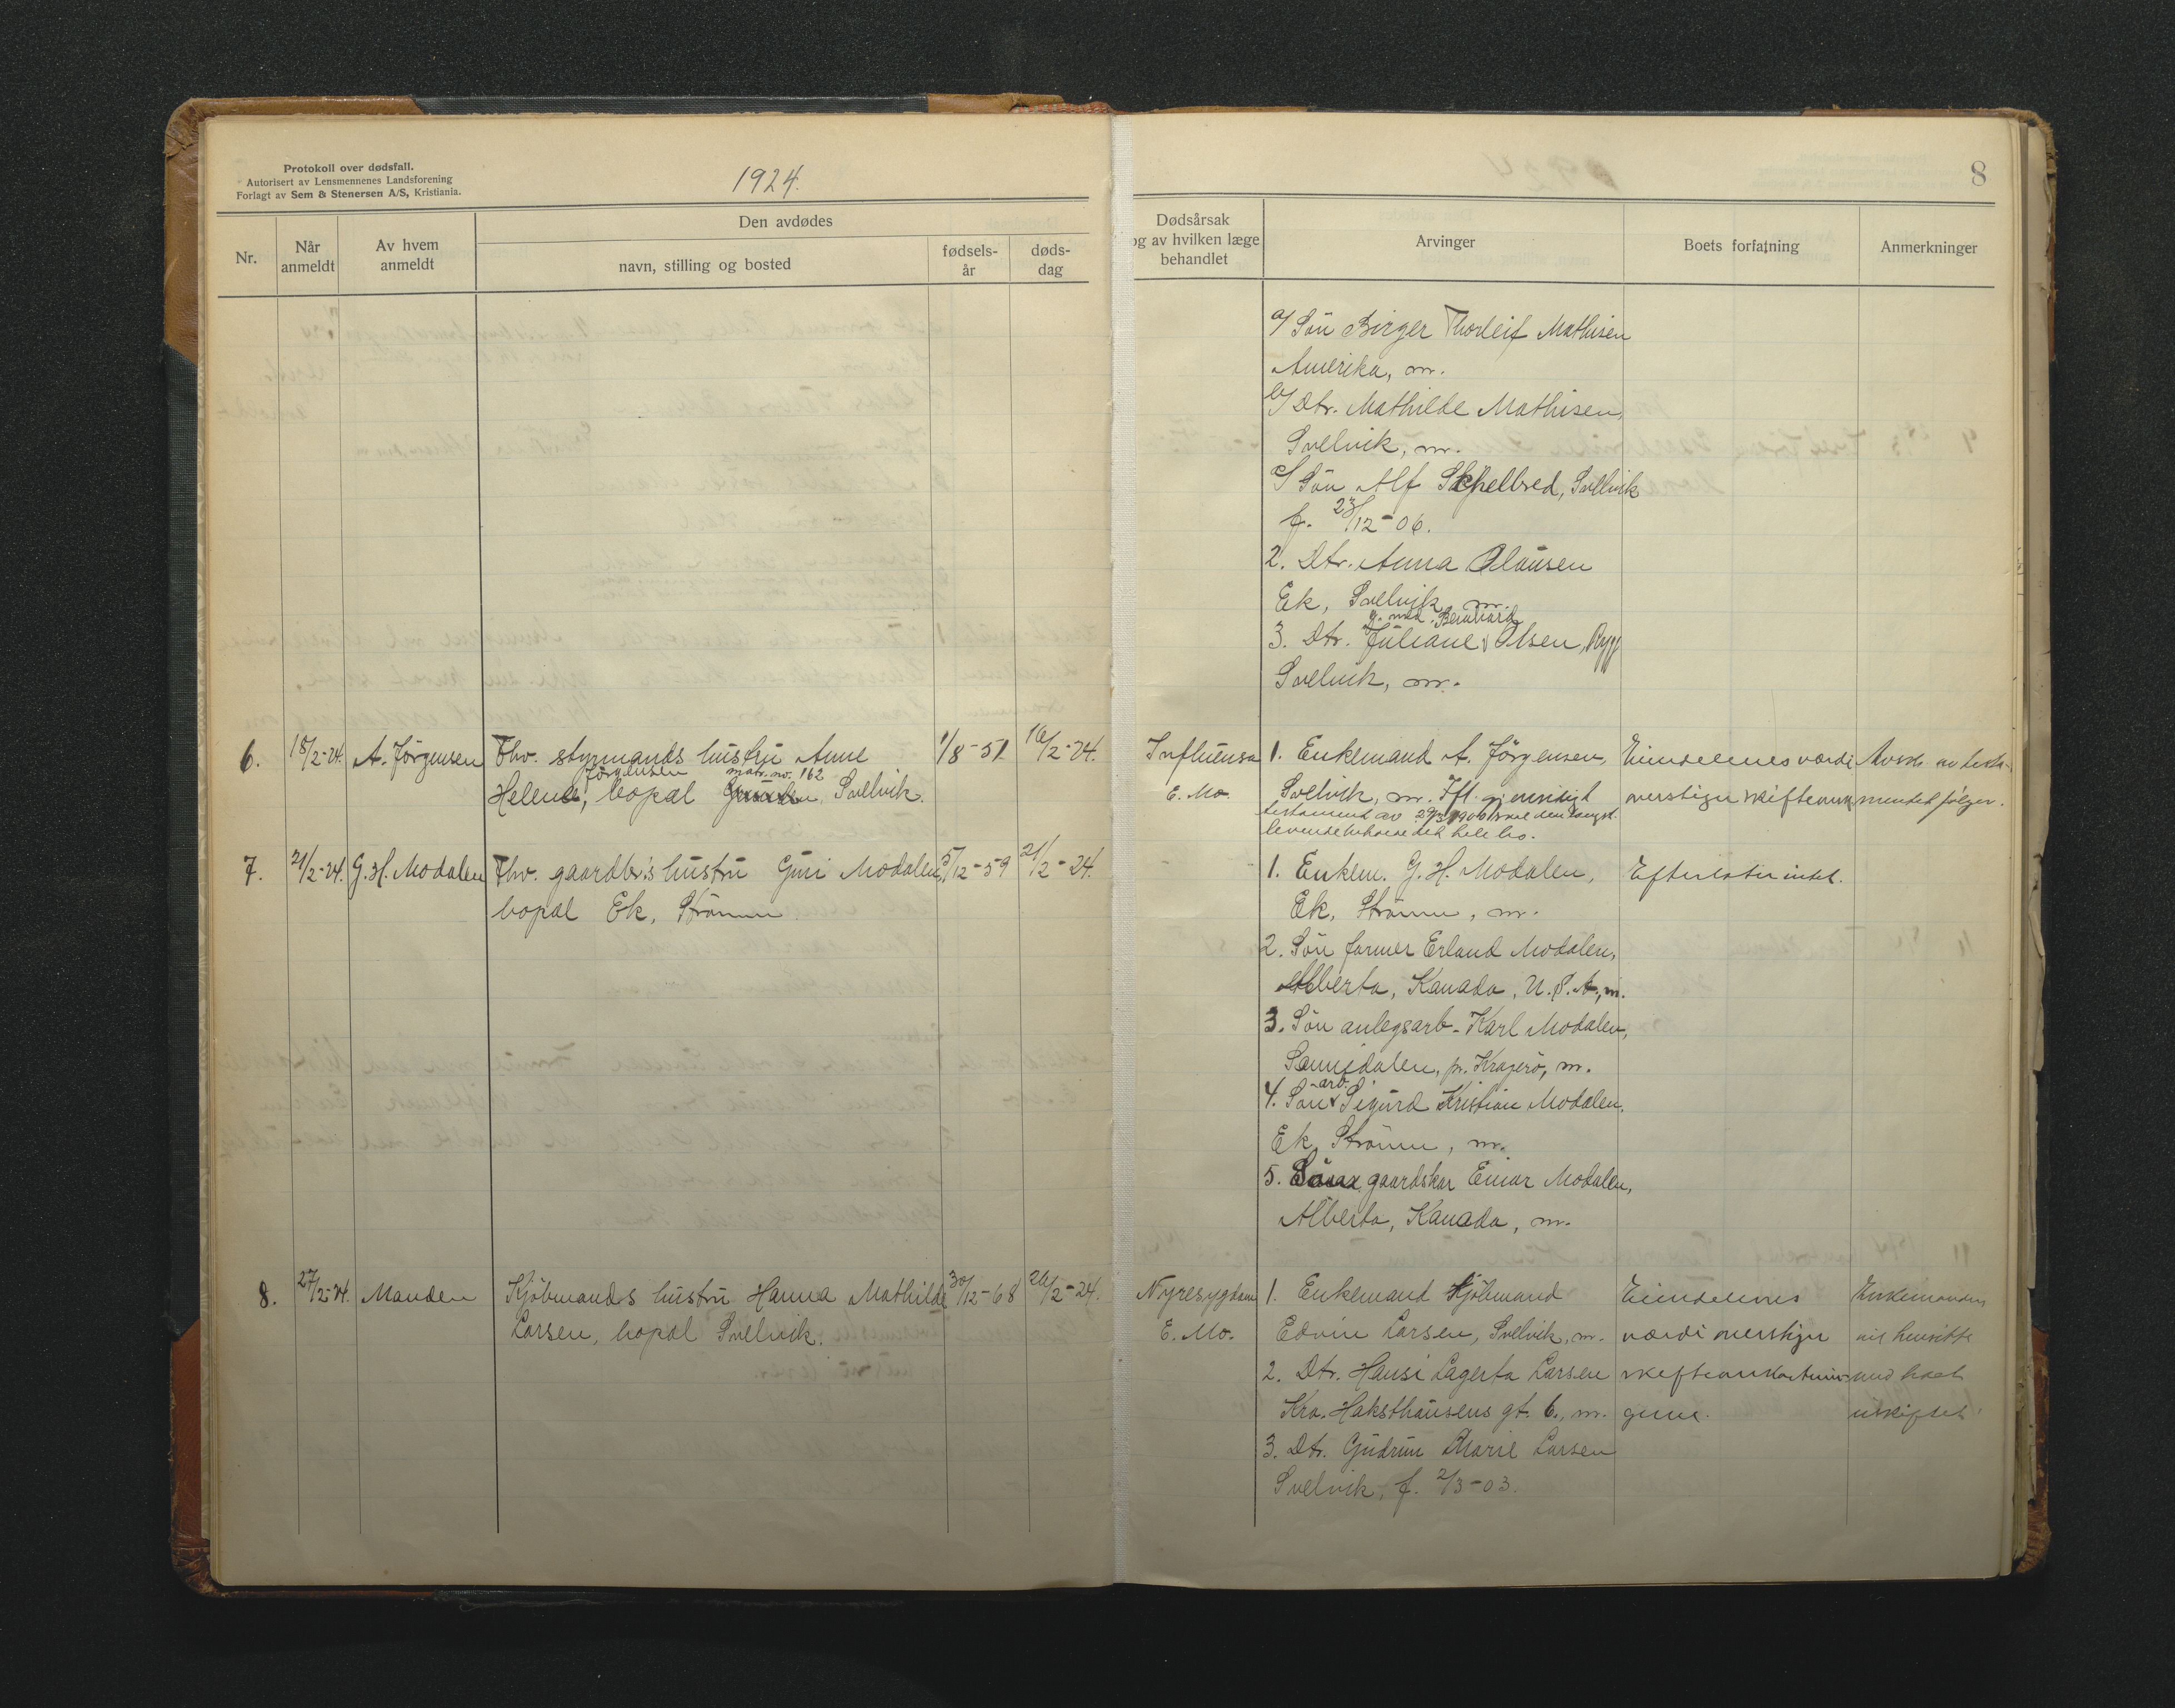 Protokoll over dødsfall.
Autorisert av Lensmennenes Landsforening
Forlagt av Sem & Stenersen A/S, Kristiania.
1924.
Nr.
Når anmeldt
Av hvem anmeldt
Den avdødes
navn, stilling og bosted
fødsels-år
døds-dag
6. 18/2-24. A. Jörgensen Fhv. styrmands hustru Anne 1/8-51 16/2-24.
Jörgensen matr. no. 162
Helene, bopæl Svelvik.
7. 21/2-24. G. H. Modalen Fhv. gaardbr's hustru Guri Modalen, 5/12-59 21/2-24.
bopæl Ek, Strömm
8. 27/2-24. Manden Kjöbmands hustru Hanna Mathilde 30/12-68 26/2-24.
Larsen, bopæl Svelvik.
8
Dødsårsak
og av hvilken læge
behandlet
Arvinger
Boets forfatning
Anmerkninger
a/ Sön Birger Thorleif Mathisen
Amerika, m.
b/ Dtr. Mathilde Mathisen,
Svelvik, m.
c/ Sön Alf Skjelbred, Svelvik
f. 23/12-06.
2. Dtr. Anna Clausen
Ek, Svelvik, m.
g. med Bernhard
3. Dtr. Juliane Olsen, Rygg
Svelvik, m.
Influensa 1. Enkemand A. Jörgensen, Eiendelenes værdi Avskr. av testa-
E. Mo. Svelvik, m. Ifl. gjensidigt overstiger skifteomk mentet følger.
testament av 29/3 1906 skal den længst-
levende beholde det hele bo.
1. Enkem. G. H. Modalen, Efterlater intet.
Ek, Strömm, m.
2. Sön farmer Erland Modalen,
Alberta, Kanada, U.S.A., m.
3. Sön anlegsarb. Karl Modalen,
Sannidalen, pr. Kragerö, m.
arb.
4. Sön Sigurd Kristian Modalen,
Ek, Strömm, m.
5. Sön gaardskar Einar Modalen,
Alberta, Kanada, m.
Nyresygdom 1. Enkemand Kjöbmand Eiendelenes Enkemanden
E. Mo. Edvin Larsen, Svelvik, m. værdi overstiger vil hensitte
2. Dtr. Hansi Lagerta Larsen skifteomkostnin- med boet
Kra. Haksthausens gt. 6., m. gene. uskiftet.
3. Dtr. Gudrun Marie Larsen
Svelvik, f. 2/3-03.